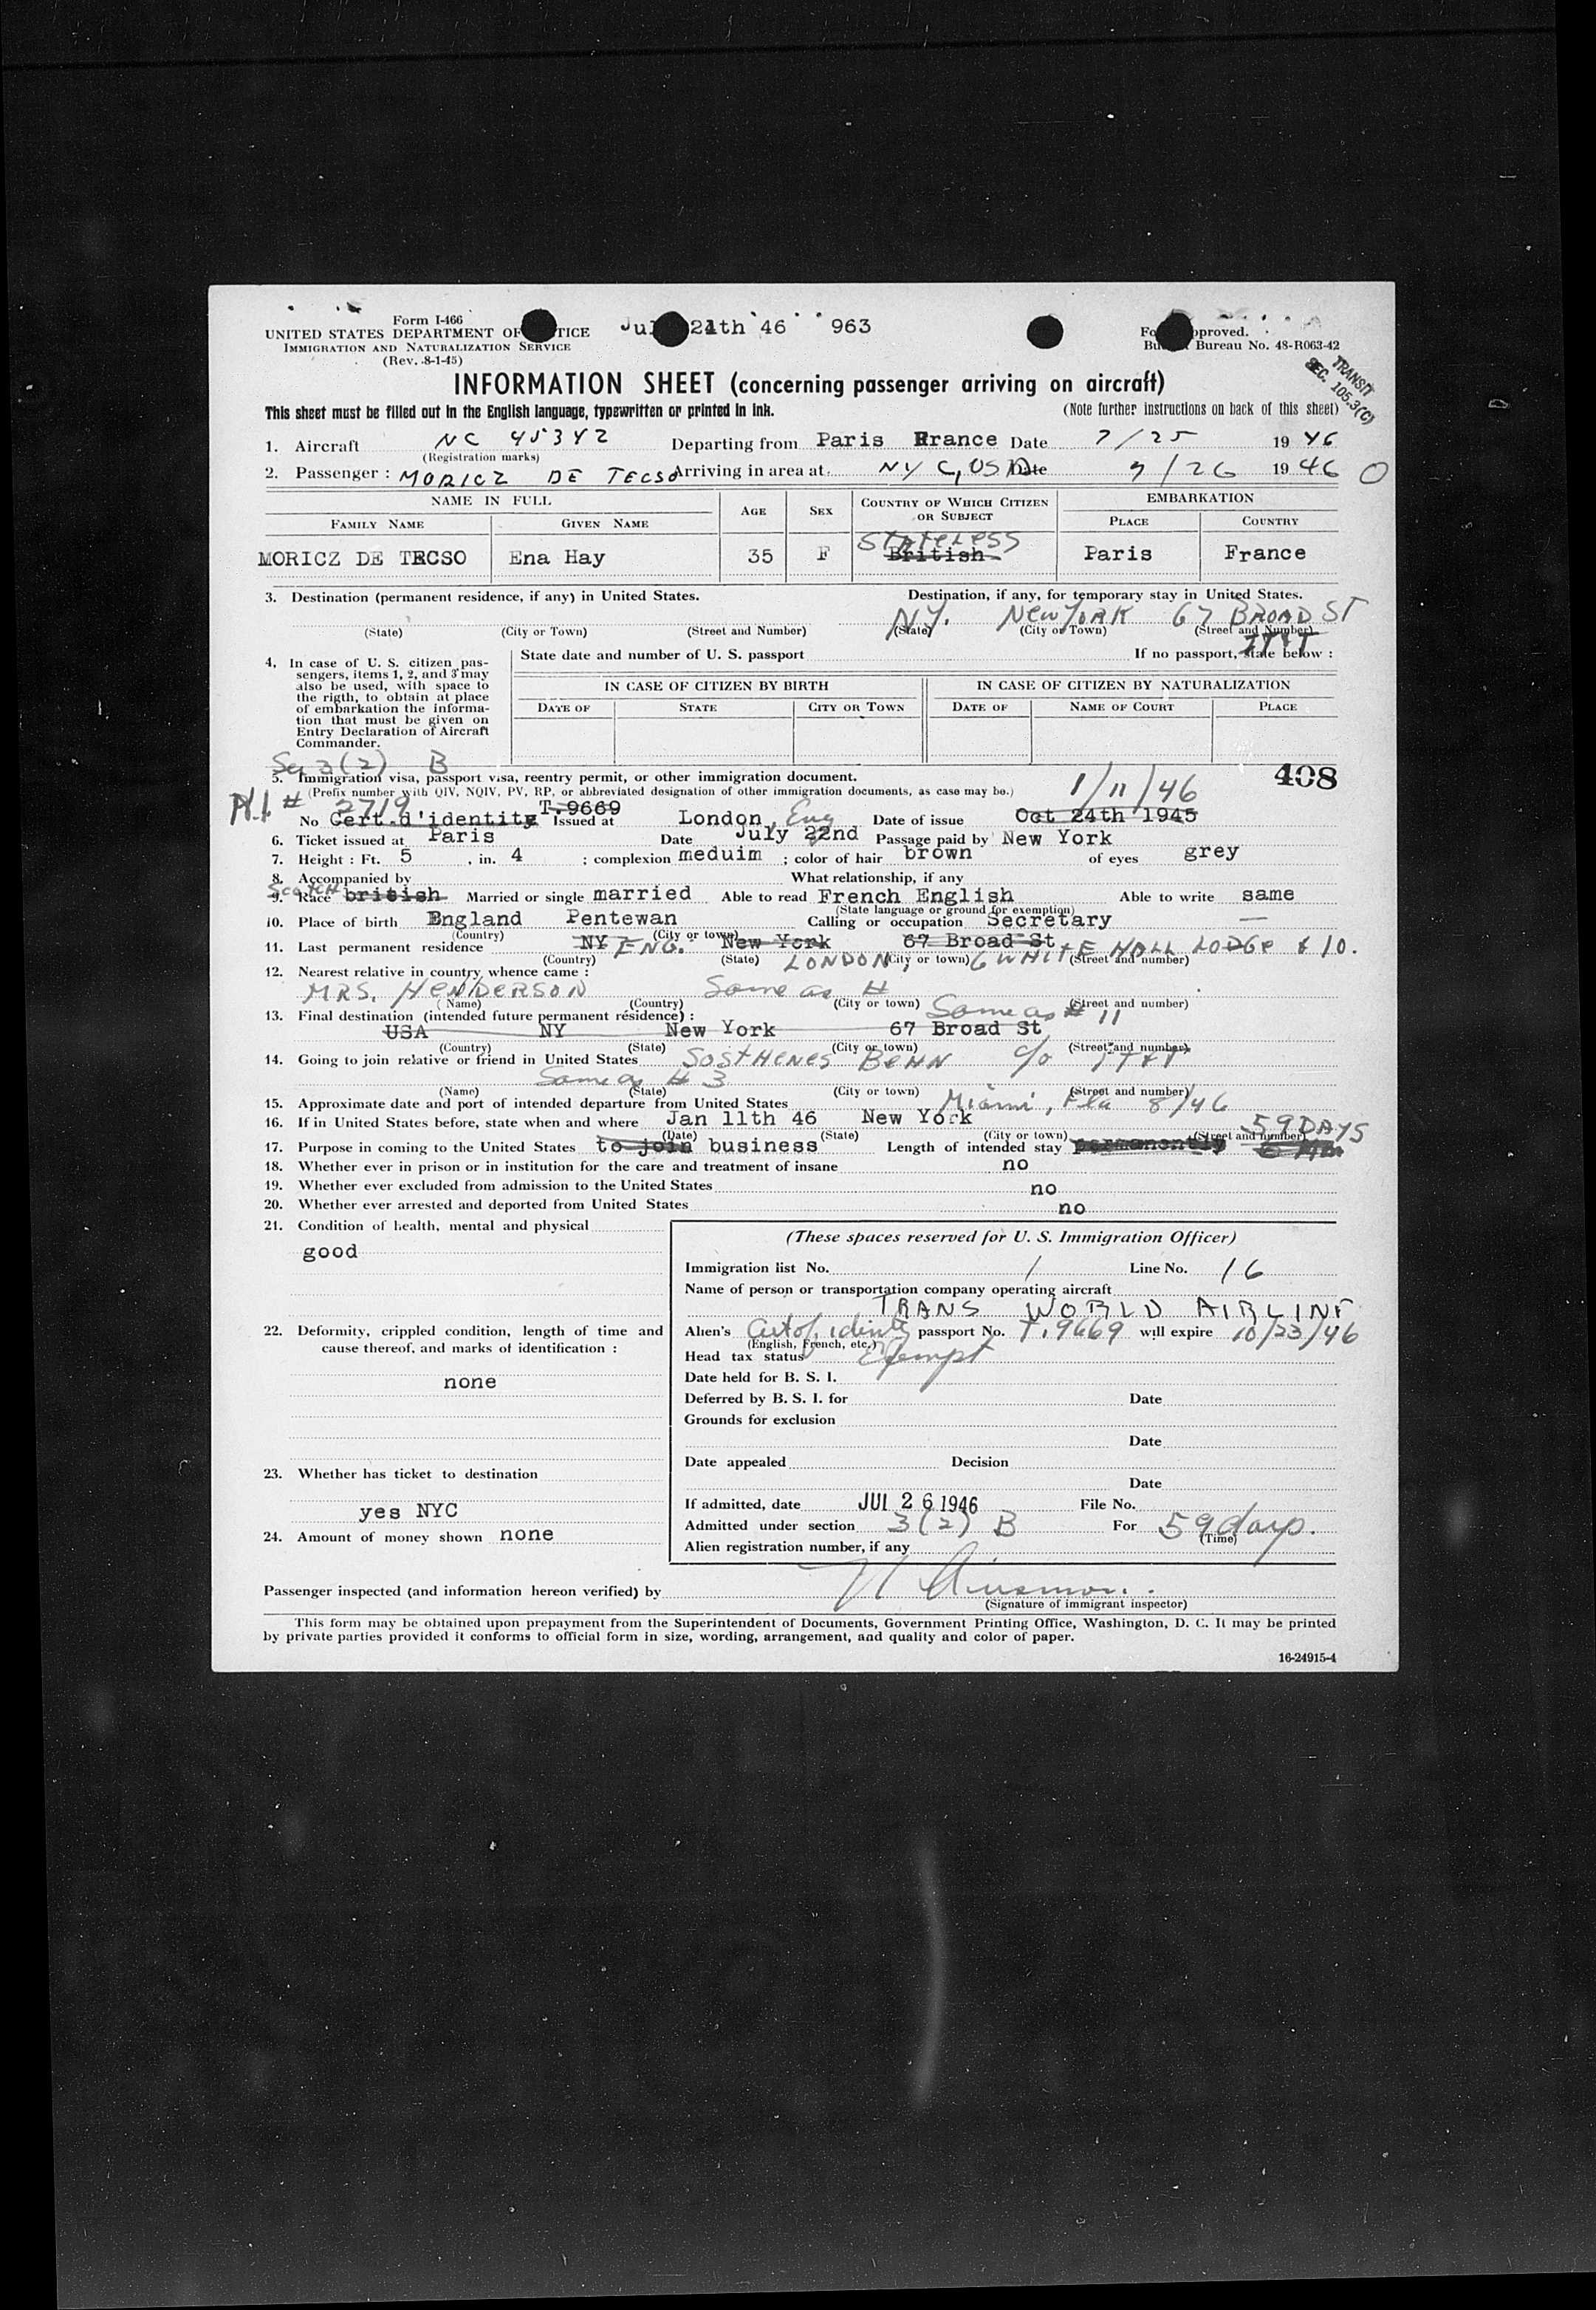 Form I-466
UNITED STATES DEPARTMENT OF TICE
IMMIGRATION AND NATURALIZATION SERVICE
(Rev. 8-1-45)
24th 46 963
pproved.
Bureau No. 48-R063-42
TRANSIT
SEC. 105.3(C)
INFORMATION SHEET (concerning passenger arriving on aircraft)
This sheet must be filled out in the English language, typewritten or printed in ink. (Note further instructions on back of this sheet)
1. Aircraft NC 45342 Departing from Paris France Date 7/25 1946
(Registration marks)
2. Passenger: MORICZ DE TECSO Arriving in area at NYC, USA Date 7/26 1946 O
NAME IN FULL AGE SEX COUNTRY OF WHICH CITIZEN OR SUBJECT EMBARKATION
FAMILY NAME GIVEN NAME PLACE COUNTRY
STATELESS
MORICZ DE TECSO Ena Hay 35 F British Paris France
3. Destination (permanent residence, if any) in United States. Destination, if any, for temporary stay in United States.
N.Y. NEW YORK 67 BROAD ST
(State) (City or Town) (Street and Number) (State) (City or Town) (Street and Number)
IT&T
4. In case of U. S. citizen pas-
sengers, items 1, 2, and 3 may
also be used, with space to
the rigth, to obtain at place
of embarkation the informa-
tion that must be given on
Entry Declaration of Aircraft
Commander.
State date and number of U. S. passport If no passport, state below :
IN CASE OF CITIZEN BY BIRTH IN CASE OF CITIZEN BY NATURALIZATION
DATE OF STATE CITY OR TOWN DATE OF NAME OF COURT PLACE
3(2) B
5. Immigration visa, passport visa, reentry permit, or other immigration document. 1/11/46 408
(Prefix number with QIV, NQIV, PV, RP, or abbreviated designation of other immigration documents, as case may be.)
# 2719
No Cert.d'identity T.9669 Issued at London, Eng Date of issue Oct 24th 1945
6. Ticket issued at Paris Date July 22nd Passage paid by New York
7. Height : Ft. 5 , in. 4 ; complexion meduim ; color of hair brown of eyes grey
8. Accompanied by What relationship, if any
SCOTCH
9. Race british Married or single married Able to read French English Able to write same
(State language or ground for exemption)
10. Place of birth England Pentewan Calling or occupation Secretary —
(Country) (City or town)
11. Last permanent residence NY ENG. New York 67 Broad St
(Country) (State) LONDON, (City or town) 6 WHITE HALL LODGE (Street and number) 10.
12. Nearest relative in country whence came :
MRS. HENDERSON Same as #
(Name) (Country) (City or town) (Street and number)
13. Final destination (intended future permanent résidence) : Same as # 11
USA NY New York 67 Broad St
(Country) (State) (City or town) (Street and number)
14. Going to join relative or friend in United States SOSTHENES BEHN c/o IT&T
Same as # 3
(Name) (State) (City or town) (Street and number)
15. Approximate date and port of intended departure from United States Miami, Fla 8/46
16. If in United States before, state when and where Jan 11th 46 New York
(Date) (State) (City or town) (Street and number)
59 DAYS
17. Purpose in coming to the United States to join business Length of intended stay permanently
18. Whether ever in prison or in institution for the care and treatment of insane no
19. Whether ever excluded from admission to the United States no
20. Whether ever arrested and deported from United States no
21. Condition of health, mental and physical
good
22. Deformity, crippled condition, length of time and
cause thereof, and marks of identification :
none
23. Whether has ticket to destination
yes NYC
24. Amount of money shown none
(These spaces reserved for U. S. Immigration Officer)
Immigration list No. 1 Line No. 16
Name of person or transportation company operating aircraft
TRANS WORLD AIRLINE
Alien's Cert of identy passport No. T.9669 will expire 10/23/46
(English, French, etc.)
Head tax status Exempt
Date held for B. S. I.
Deferred by B. S. I. for Date
Grounds for exclusion
Date
Date appealed Decision
Date
If admitted, date JUL 26 1946 File No.
Admitted under section 3(2) B For 59 days.
(Time)
Alien registration number, if any
Passenger inspected (and information hereon verified) by
(Signature of immigrant inspector)
This form may be obtained upon prepayment from the Superintendent of Documents, Government Printing Office, Washington, D. C. It may be printed
by private parties provided it conforms to official form in size, wording, arrangement, and quality and color of paper.
16-24915-4